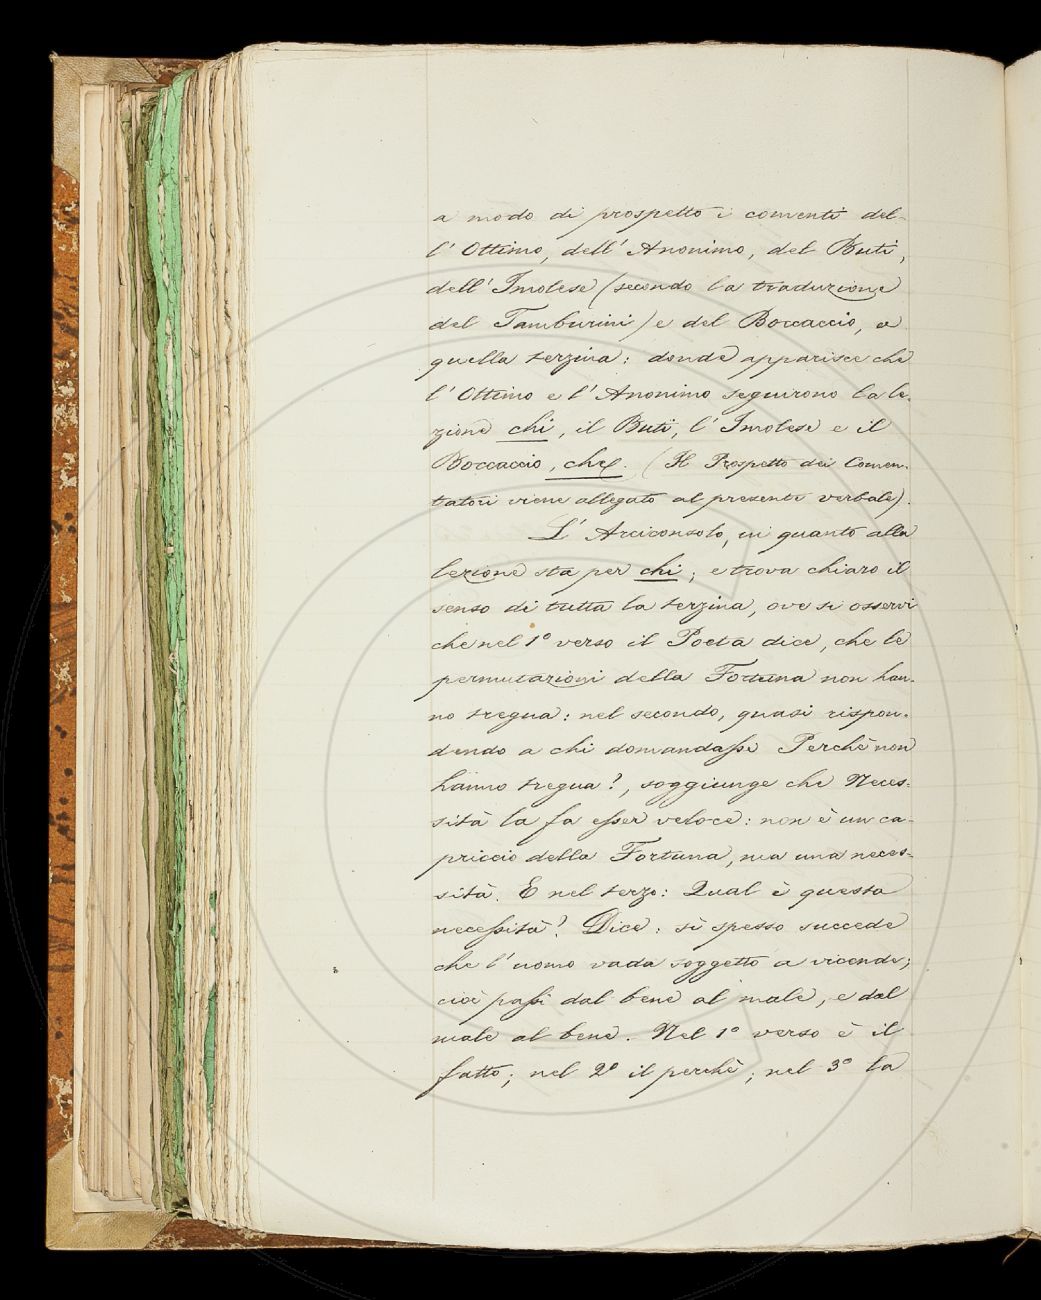 a modo di prospetto i comenti del-
l' Ottimo, dell' Anonimo, del Buti,
dell' Imolese (secondo la traduzione
del Tamburini) e del Boccaccio, a
quella terzina: donde apparisce che
l' Ottimo e l' Anonimo seguirono la le-
zione chi, il Buti, l' Imolese e il
Boccaccio, che. (Il Prospetto dei Comen-
tatori viene allegato al presente verbale).
L' Arciconsolo, in quanto alla
lezione sta per chi; e trova chiaro il
senso di tutta la terzina, ove si osservi
che nel 1º verso il Poeta dice, che le
permutazioni della Fortuna non han-
no tregua: nel secondo, quasi rispon-
dendo a chi domandasse Perchè non
hanno tregua?, soggiunge che Neces-
sità la fa esser veloce: non è un ca-
priccio della Fortuna, ma una neces-
sità. E nel terzo: Qual è questa
necessità? Dice: sì spesso succede
che l' uomo vada soggetto a vicende;
cioè passi dal bene al male, e dal
male al bene. Nel 1º verso è il
fatto; nel 2º il perchè; nel 3º la